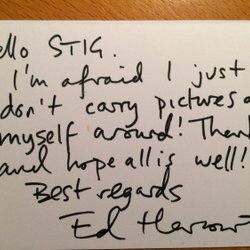 ello STIG.
I'm afraid I just
don't carry pictures o
myself around! Than
and hope all is well!
Best regards
Ed